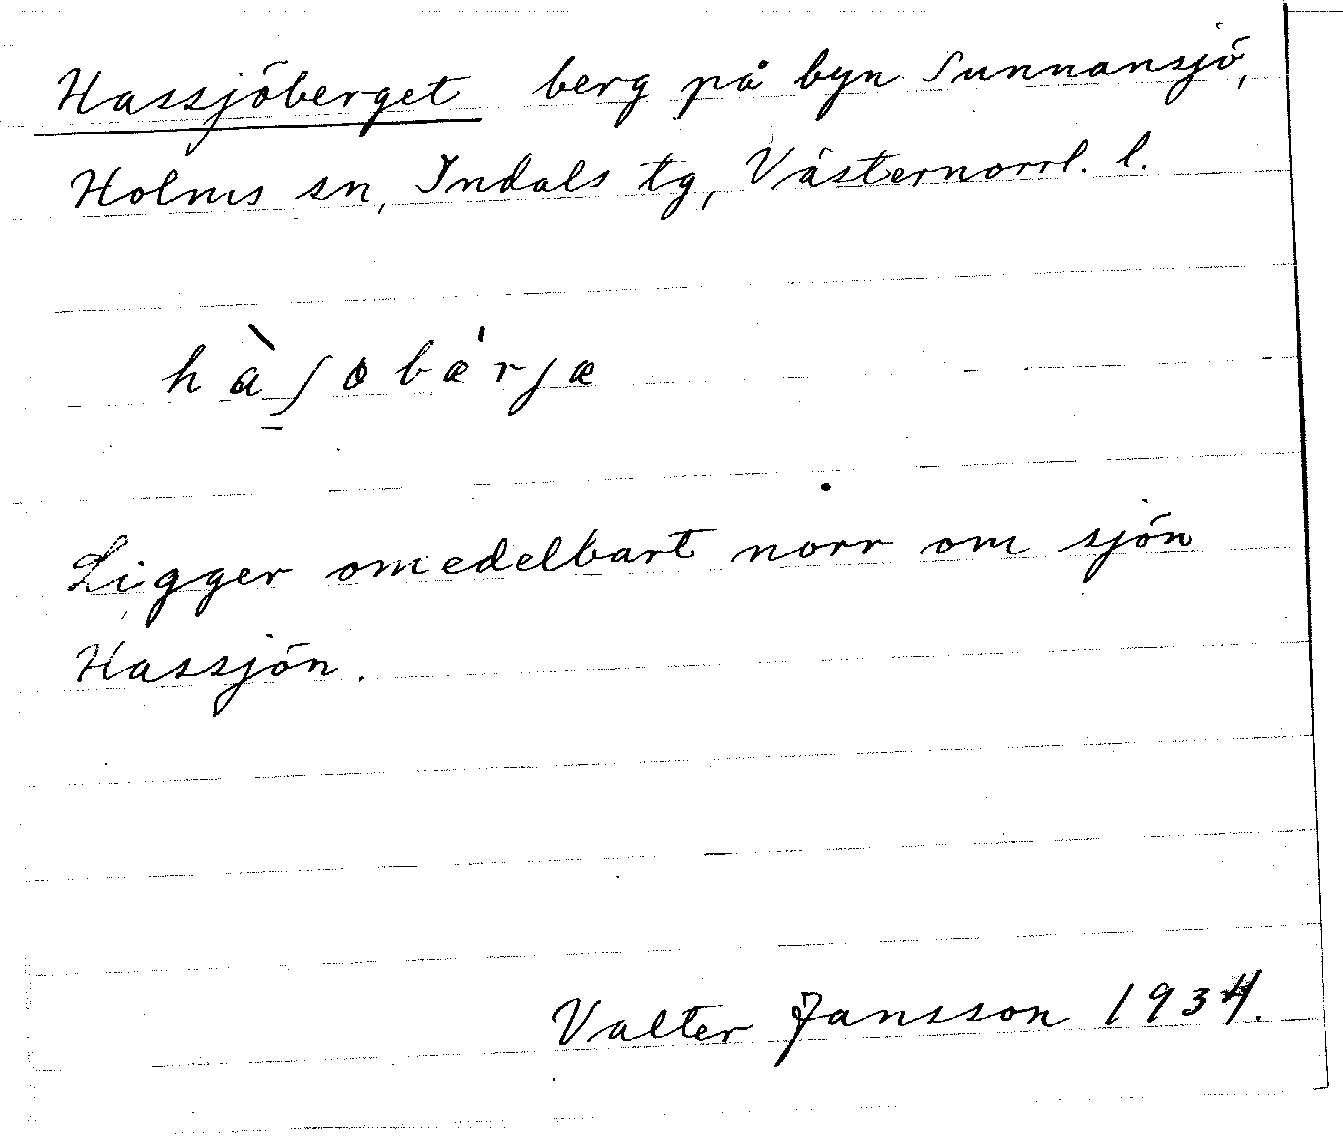 Hassjöberget berg på byn Sunnansjö,
Holms sn, Indals tg, Västernorrl. l.
hàʃobǽrjæ
Ligger omedelbart norr om sjön
Hassjön.
Valter Jansson 1934.